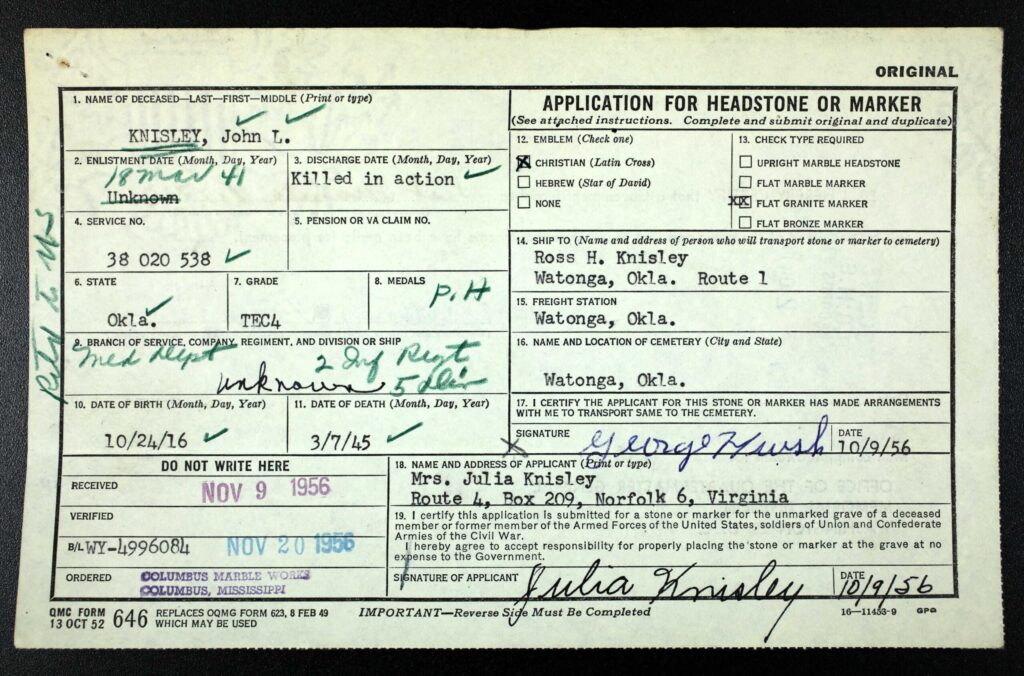 ORIGINAL
1. NAME OF DECEASED—LAST—FIRST—MIDDLE (Print or type)
KNISLEY, John L.
2. ENLISTMENT DATE (Month, Day, Year)
18 Mar 41
Unknown
3. DISCHARGE DATE (Month, Day, Year)
Killed in action
4. SERVICE NO.
38 020 538
5. PENSION OR VA CLAIM NO.
6. STATE
Okla.
7. GRADE
TEC4
8. MEDALS
P.H
9. BRANCH OF SERVICE, COMPANY, REGIMENT, AND DIVISION OR SHIP
Med Dept 2 Inf Regt
unknown 5 Div
10. DATE OF BIRTH (Month, Day, Year)
10/24/16
11. DATE OF DEATH (Month, Day, Year)
3/7/45
APPLICATION FOR HEADSTONE OR MARKER
(See attached instructions. Complete and submit original and duplicate)
12. EMBLEM (Check one)
X CHRISTIAN (Latin Cross)
HEBREW (Star of David)
NONE
13. CHECK TYPE REQUIRED
UPRIGHT MARBLE HEADSTONE
FLAT MARBLE MARKER
XX FLAT GRANITE MARKER
FLAT BRONZE MARKER
14. SHIP TO (Name and address of person who will transport stone or marker to cemetery)
Ross H. Knisley
Watonga, Okla. Route 1
15. FREIGHT STATION
Watonga, Okla.
16. NAME AND LOCATION OF CEMETERY (City and State)
Watonga, Okla.
17. I CERTIFY THE APPLICANT FOR THIS STONE OR MARKER HAS MADE ARRANGEMENTS
WITH ME TO TRANSPORT SAME TO THE CEMETERY.
X SIGNATURE George
DATE
10/9/56
DO NOT WRITE HERE
RECEIVED NOV 9 1956
VERIFIED
B/L WY-4996084 NOV 20 1956
ORDERED COLUMBUS MARBLE WORKS
COLUMBUS, MISSISSIPPI
18. NAME AND ADDRESS OF APPLICANT (Print or type)
Mrs. Julia Knisley
Route 4, Box 209, Norfolk 6, Virginia
19. I certify this application is submitted for a stone or marker for the unmarked grave of a deceased
member or former member of the Armed Forces of the United States, soldiers of Union and Confederate
Armies of the Civil War.
I hereby agree to accept responsibility for properly placing the stone or marker at the grave at no
expense to the Government.
SIGNATURE OF APPLICANT Julia Knisley
DATE
10/9/56
QMC FORM
13 OCT 52 646 REPLACES OQMG FORM 623, 8 FEB 49
WHICH MAY BE USED
IMPORTANT—Reverse Side Must Be Completed
16—11453-9 GPO